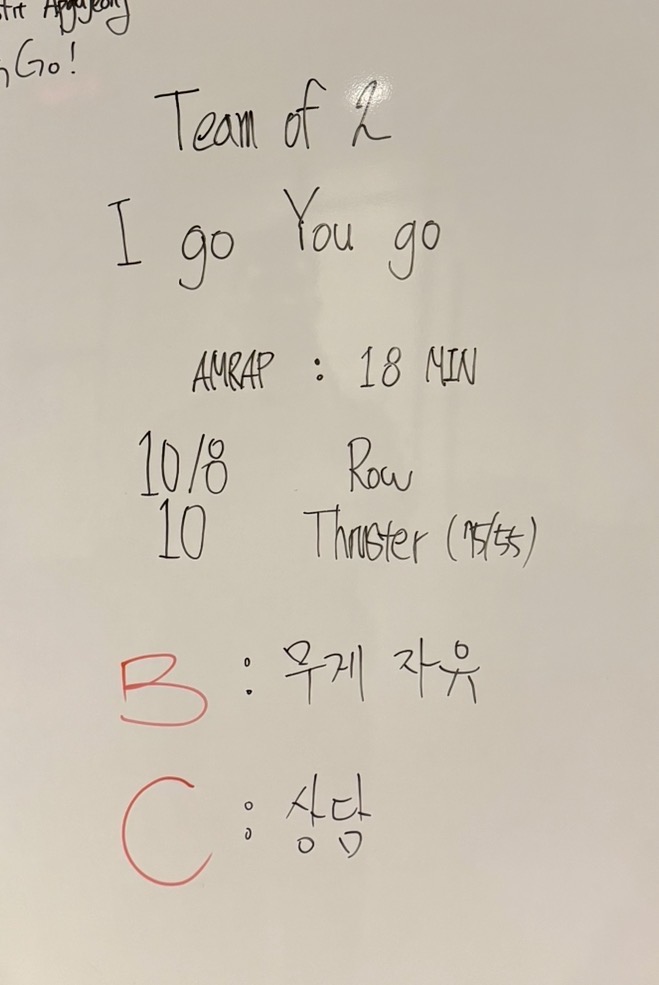 Go!
Team of 2
I go You go
AMRAP : 18 MIN
10/8 Row
10 Thruster (75/55)
B : 무게 자유
C : 상담